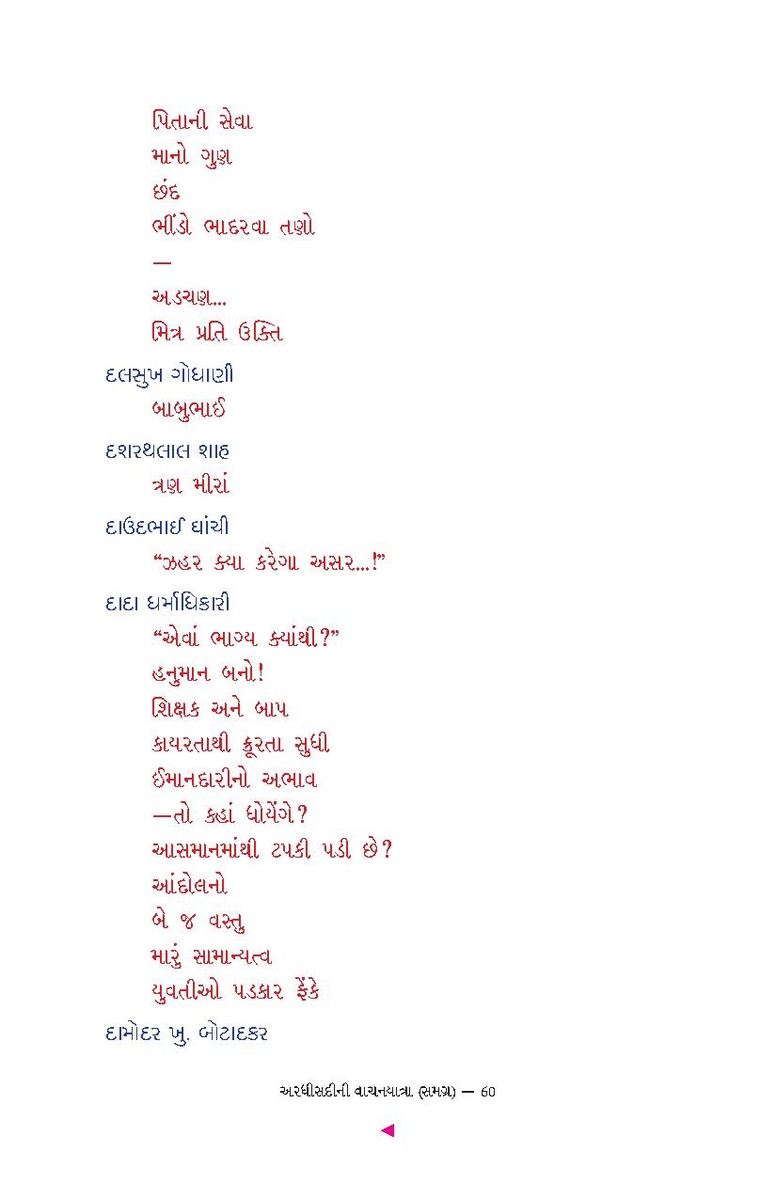 પિતાની સેવા
માનો ગુણ
છંદ
ભીંડો ભાદરવા તણો
—
અડચણ...
મિત્ર પ્રતિ ઉક્તિ
દલસુખ ગોધાણી
બાબુભાઈ
દશરથલાલ શાહ
ત્રણ મીરાં
દાઉદભાઈ ઘાંચી
“ઝહર ક્યા કરેગા અસર...!”
દાદા ધર્માધિકારી
“એવાં ભાગ્ય ક્યાંથી?”
હનુમાન બનો!
શિક્ષક અને બાપ
કાયરતાથી ક્રૂરતા સુધી
ઈમાનદારીનો અભાવ
—તો કહાં ધોયેંગે?
આસમાનમાંથી ટપકી પડી છે?
આંદોલનો
બે જ વસ્તુ
મારું સામાન્યત્વ
યુવતીઓ પડકાર ફેંકે
દામોદર ખુ. બોટાદકર
અરધીસદીની વાચનયાત્રા (સમગ્ર) — 60